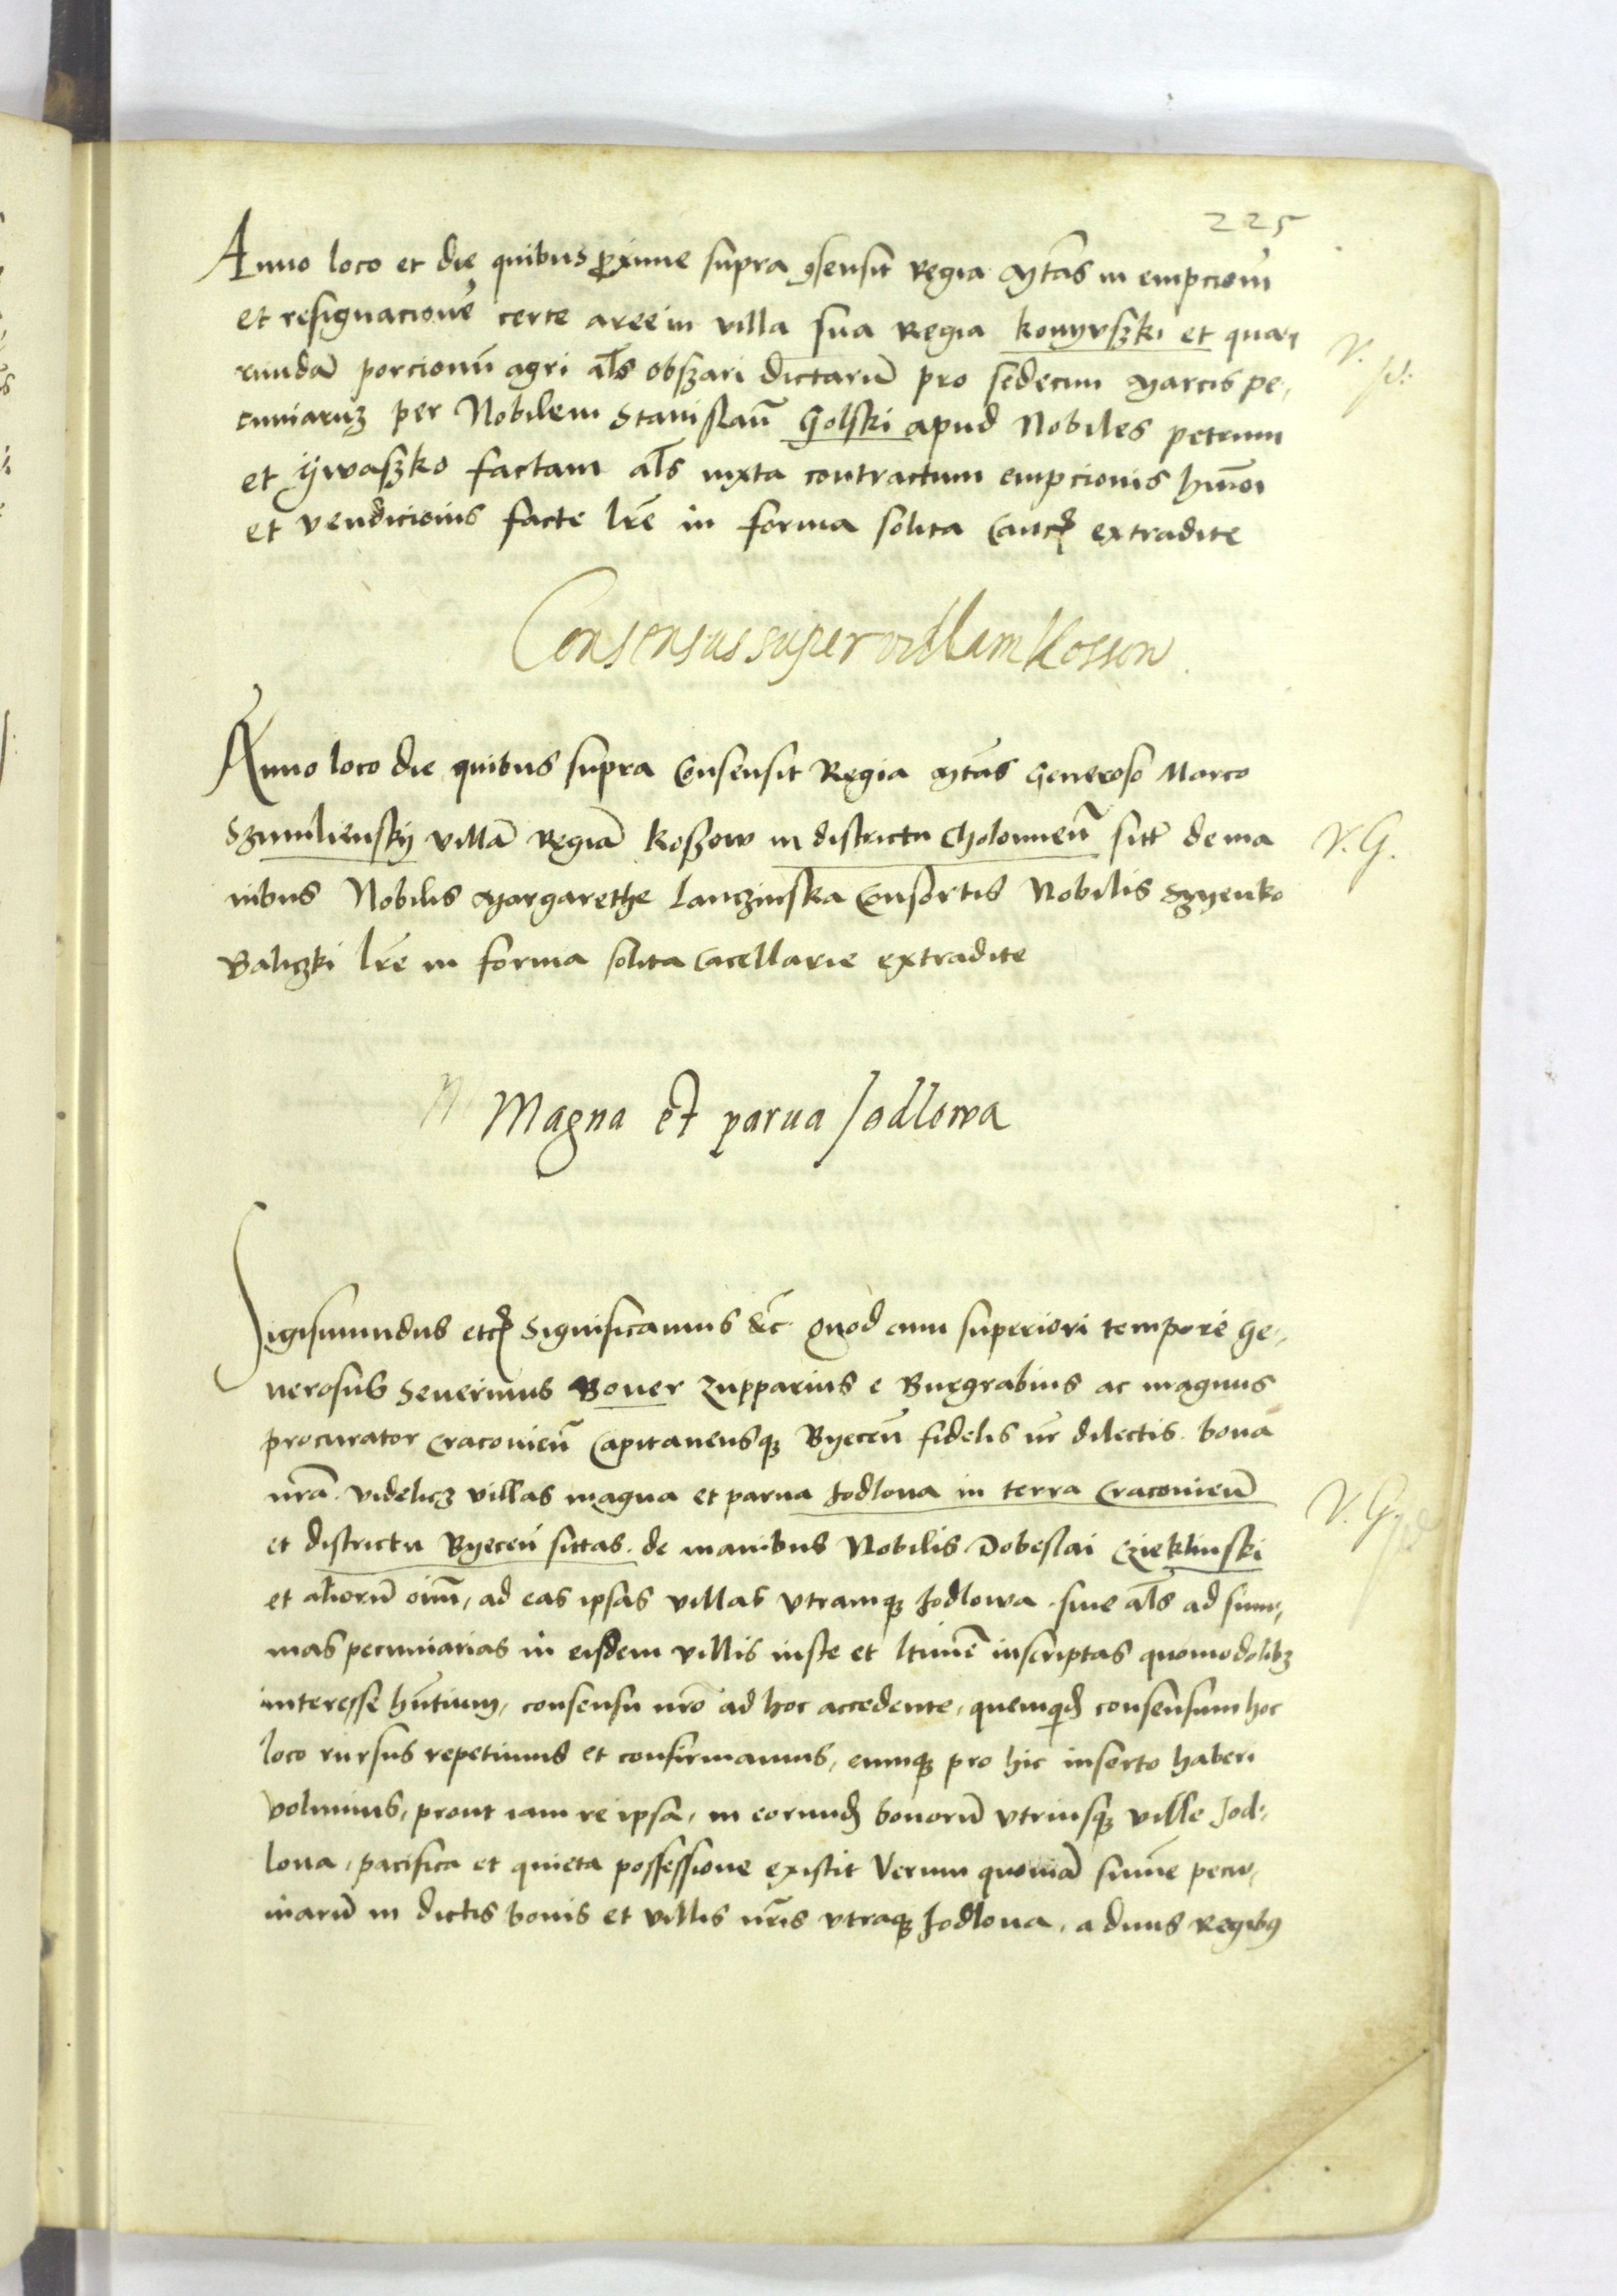 225
Anno loco et die quibus ꝓxime supra ꝯsensit Regia Mtas in empcioem̄
et resignacionē certe aree in villa sua Regia konyvszki et qua-
rundā porcionū agri al̄s obszari dictarū pro sedecim Marcis pe-
cuniarū per Nobilem Stanislaū Golski apud Nobiles petrum
et ywaszko factam al̄s iuxta contractum empcionis hm̄oi
et vendicionis facte lr̄e in forma solita Canc̄ extradite
Consensus super villam Kossow
Anno loco die quibus supra Consensit Regia Mtas Generoso Marco
Szumliensky villā Regiā koszow in districtu Cholomieñ sitt̄ de ma
nibus Nobilis Margarethe Lanczinska Consortis Nobilis Syenko
Baliczki lr̄e in forma solita Cācellarie extradite
V. G.
Magna et parua Jodlowa
Sigismundus etc̄ Significamus &c̄ Quod cum superiori tempore Ge-
nerosus Seuerinus Boner zupparius e Burgrabius ac magnus
procurator Cracovieñ Capitaneusqȝ Byeceñ fidelis nr̄ dilectis bona
nrā videlicȝ villas magna et parua Jodloua in terra Cracovieñ
V. G.
et districtu Byeceñ sittas de manibus Nobilis Dobeslai Czieklinski
et aliorū oīm, ad eas ipsas villas vtramqȝ Jodlowa siue al̄s ad sum-
mas pecuniarias in eisdem villis iuste et ltimē inscriptas quomodolibȝ
interesse hn̄tium, consensu nr̄o ad hoc accedente, quemqd̄ consensum hoc
loco rursus repetimus et confirmamus, eumqȝ pro hic inserto haberi
volumus, prout iam re ipsa, in eorund̄ bonorū vtriusqȝ ville Jod-
loua, pacifica et quieta possessione existit Verum quoniā summe pecu-
niarū in dictis bonis et villis nr̄is vtraqȝ Jodloua, a diuis Regibꝰ